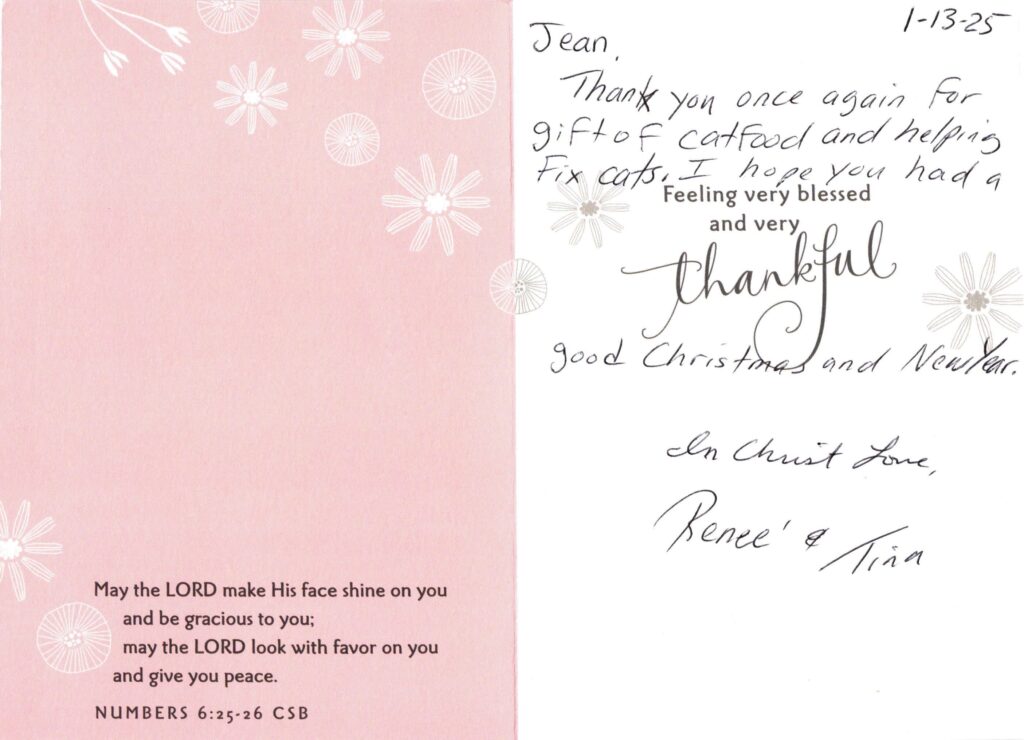 May the LORD make His face shine on you
and be gracious to you;
may the LORD look with favor on you
and give you peace.
NUMBERS 6:25-26 CSB
1-13-25
Jean,
Thank you once again for
gift of catfood and helping
Fix cats. I hope you had a
Feeling very blessed
and very
thankful
good Christmas and New Year.
In Christ Love,
Renee' &
Tina